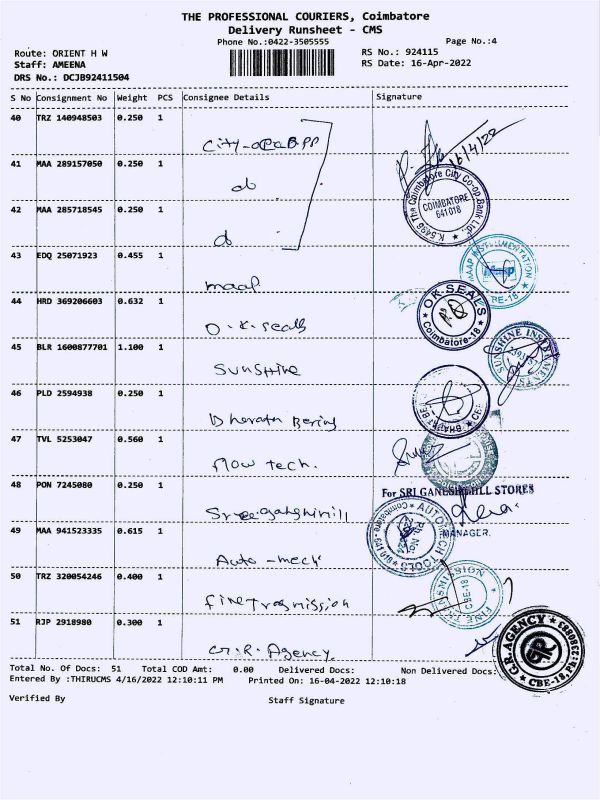 THE PROFESSIONAL COURIERS, Coimbatore
Delivery Runsheet - CMS
Phone No.:0422-3505555
Page No.:4
Route: ORIENT H W
RS No.: 924115
Staff: AMEENA
RS Date: 16-Apr-2022
DRS No.: DCJB92411504
S No Consignment No Weight PCS Consignee Details Signature
40 TRZ 140948503 0.250 1
16/4/22
41 MAA 289157050 0.250 1
K.5496 The Coimbatore City Co-op. Bank Ltd.
COIMBATORE
641018
42 MAA 285718545 0.250 1
43 EDQ 25071923 0.455 1
maap
MAAP INSTRUMENTATION
CBE-18
44 HRD 369206603 0.632 1
O.K. Seals
OK SEALS
Coimbatore-18
45 BLR 1600877701 1.100 1
Sunshine
46 PLD 2594938 0.250 1
Bharath Bering
47 TVL 5253047 0.560 1
flow tech.
48 PON 7245080 0.250 1
For SRI GANESH MILL STORES
MANAGER.
49 MAA 941523335 0.615 1
Auto-mech
AUTOMECH TOOLS
50 TRZ 320054246 0.400 1
CBE-18
51 RJP 2918980 0.300 1
G.R. Agency.
G.R. AGENCY
CBE-18,
Total No. Of Docs: 51 Total COD Amt: 0.00 Delivered Docs: Non Delivered Docs:
Entered By :THIRUCMS 4/16/2022 12:10:11 PM Printed On: 16-04-2022 12:10:18
Verified By Staff Signature